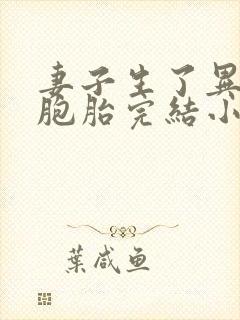 妻子生了異
胞胎完結小
葉咸魚